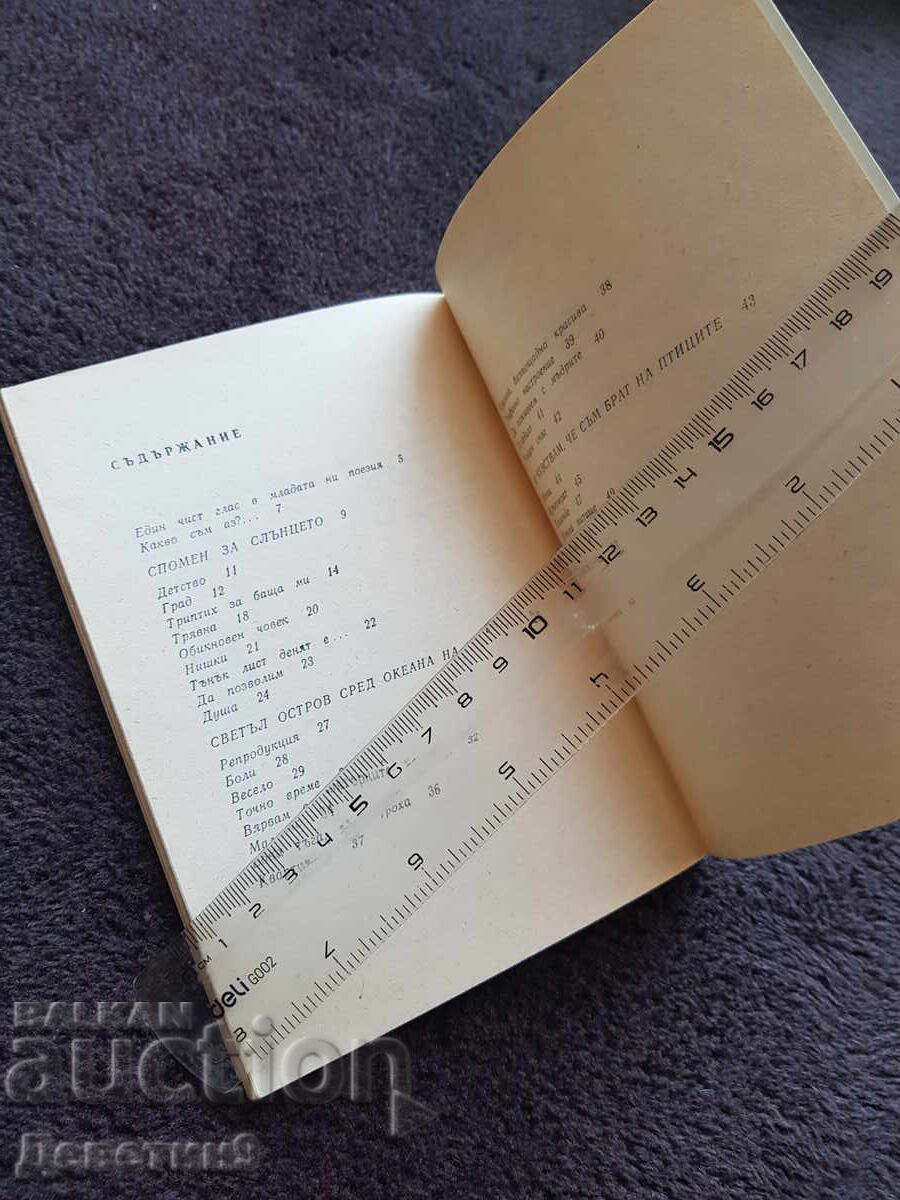 СЪДЪРЖАНИЕ
Един чист глас в младата ни поезия 5
Какво съм аз?... 7
СПОМЕН ЗА СЛЪНЦЕТО 9
Детство 11
Град 12
Триптих за баща ми 14
Трявна 18
Обикновен човек 20
Нишки 21
Тънък лист денят е... 22
Да позволим 23
Душа 24
СВЕТЪЛ ОСТРОВ СРЕД ОКЕАНА НА
Репродукция 27
Боли 28
Весело 29
Точно време
Вярвам
32
36
37
красива 38
настроение 39
с мъдрите 40
41
42
ЧЕ СЪМ БРАТ НА ПТИЦИТЕ 43
45
49
CM 1 2 3 4 5 6 7 8 9 10 11 12 13 14 15 16 17 18 19
deli G002
8 7 6 5 4 3 2 1
BALKAN
auction
Деветин9